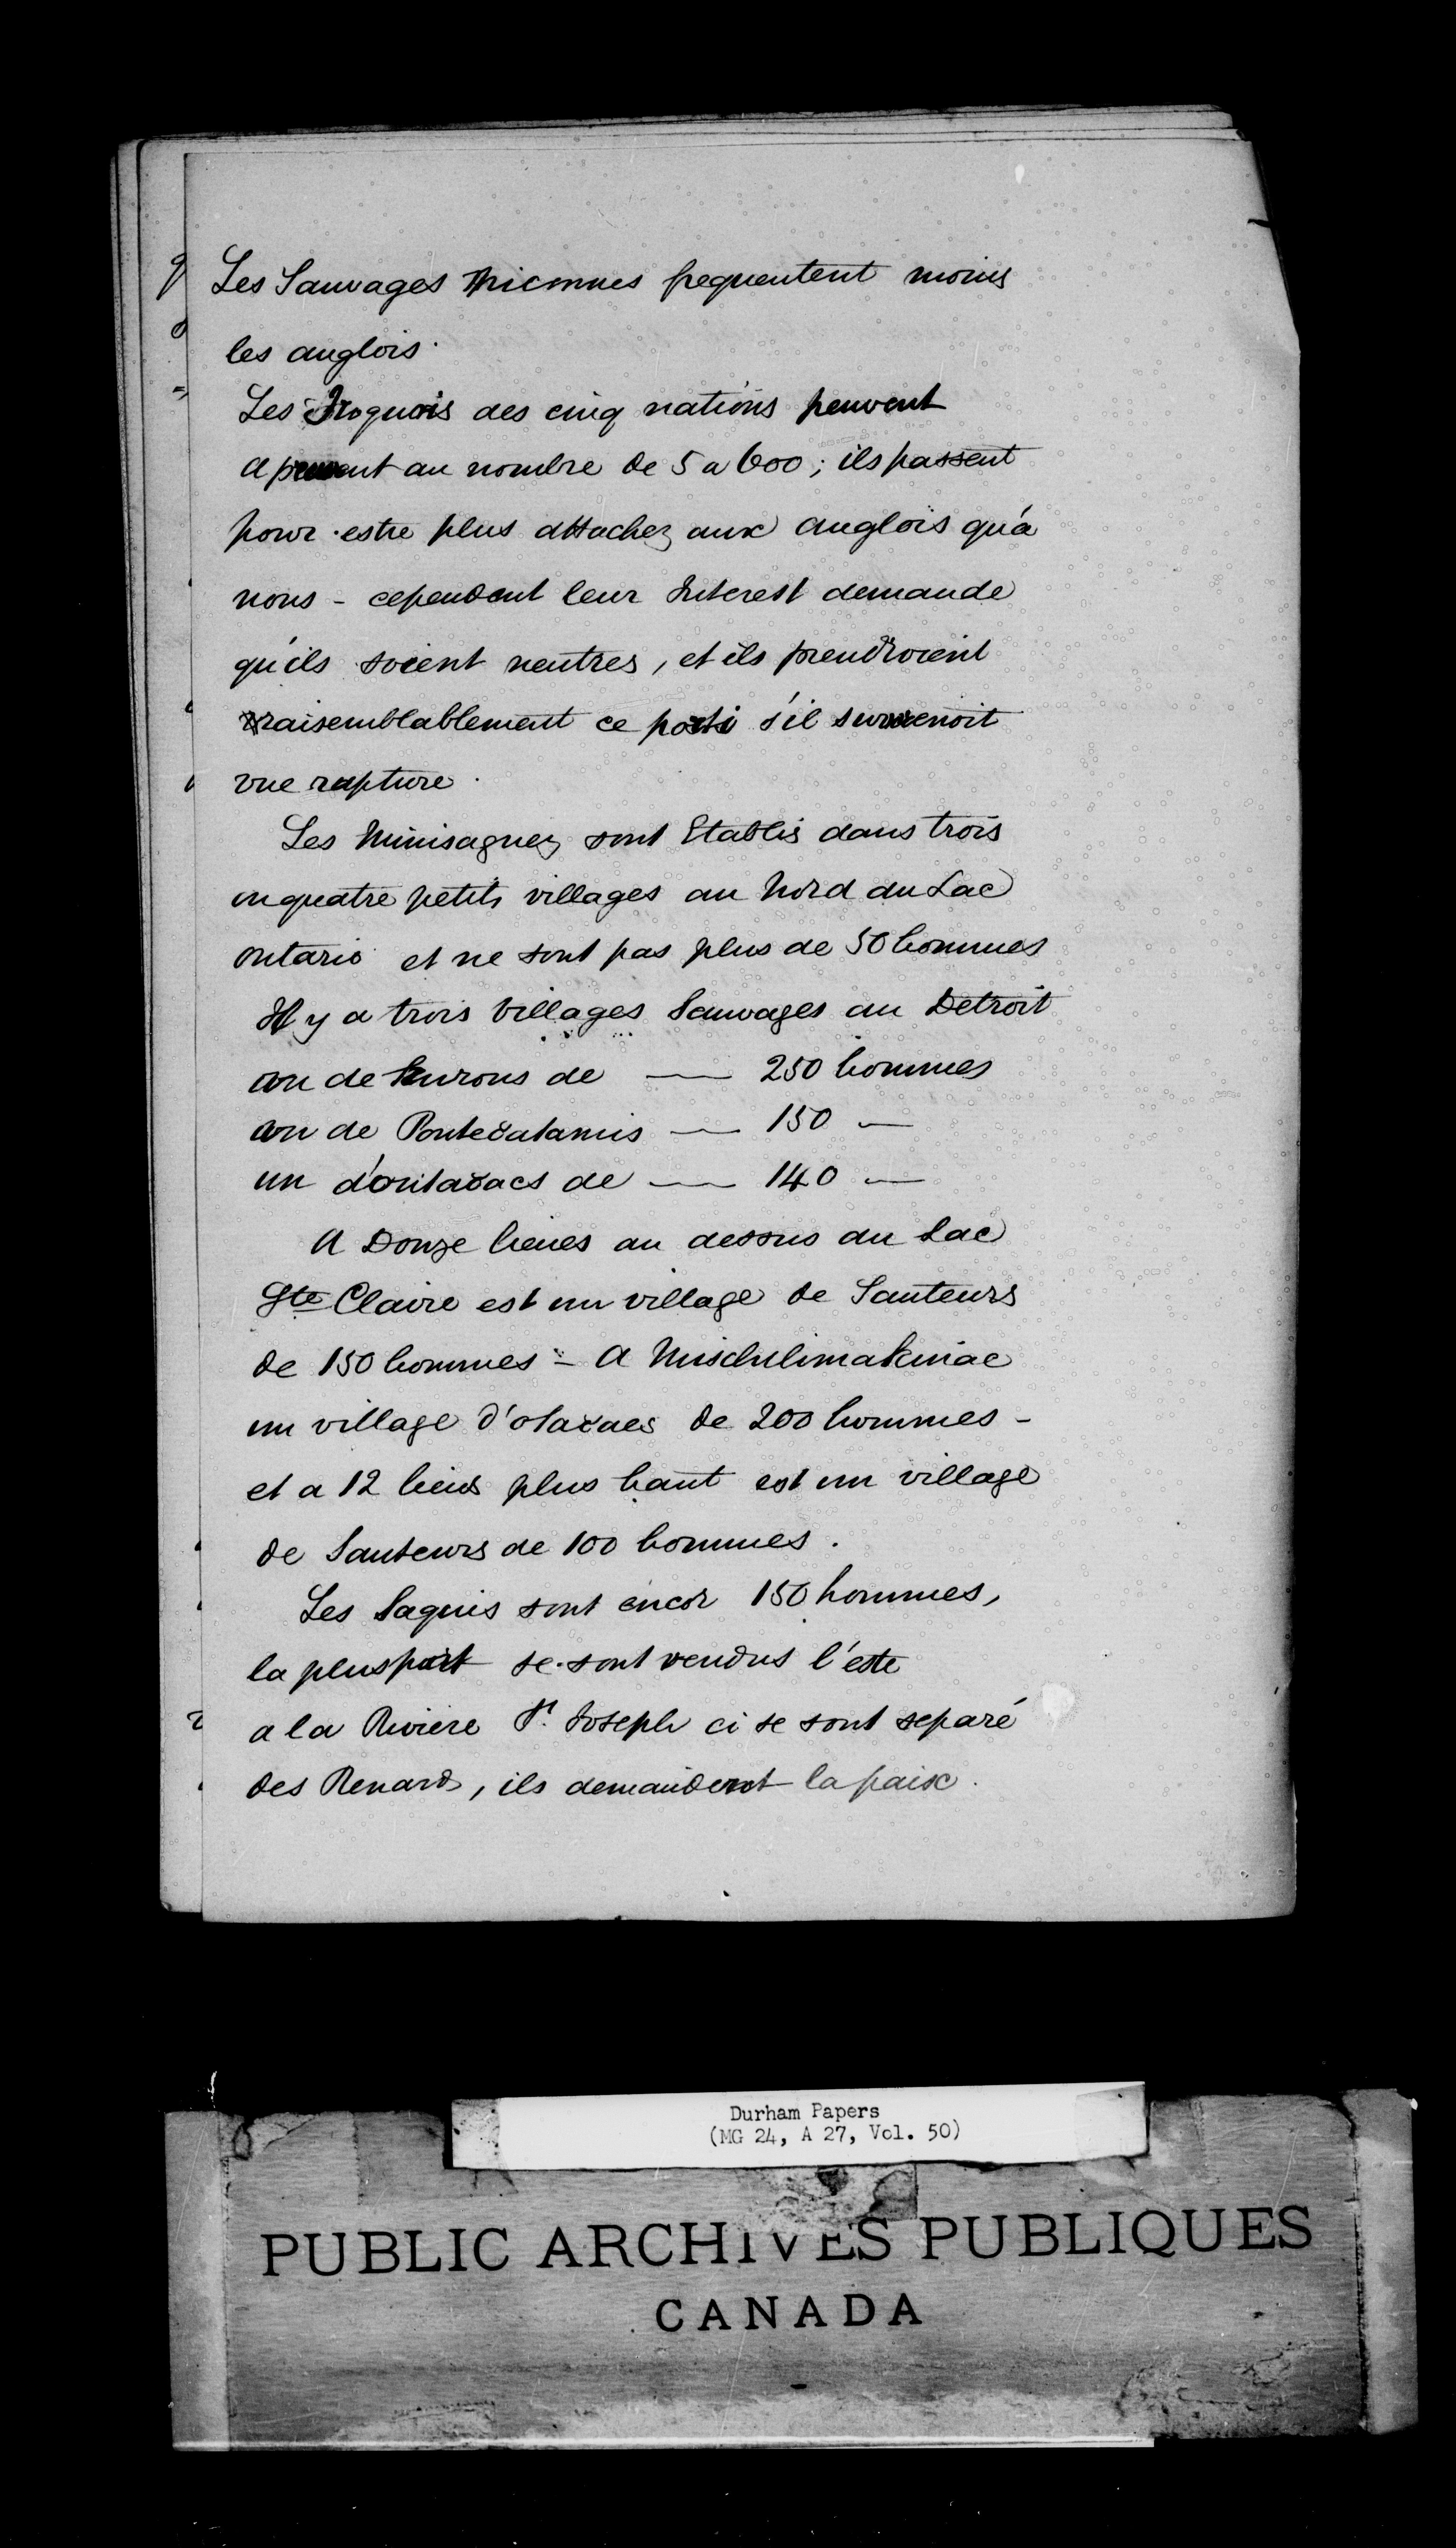 Les Sauvages Micmues frequentent moins
les anglois.
Les Iroquois des cinq nations peuvent
a present au nombre de 5 a 600; ils passent
pour estre plus attachez aux anglois qu'a
nous - cependant leur Interest demande
qu'ils soient neutres, et ils prendroient
vraisemblablement ce parti s'il survenoit
vne rupture.
Les Missisaguez sont Etablis dans trois
ou quatre petits villages au Nord du Lac
ontario et ne sont pas plus de 50 hommes
Il y a trois Villages Sauvages au Detroit
un de hurons de — 250 hommes
un de Pouteoatamis — 150 —
un d'outaoacs de — 140 —
A Douze lieues au dessus du Lac
Ste Claire est un village de Sauteurs
de 150 hommes - A Mischilimakinac
un village d'otaoacs de 200 hommes -
et a 12 lieus plus haut est un village
de Sauteurs de 100 hommes.
Les Saquis sont encor 150 hommes,
la pluspart se sont rendus l'este
a la Riviere St. Joseph ci se sont separé
des Renards, ils demandent la paix.
Durham Papers
(MG 24, A 27, Vol. 50)
PUBLIC ARCHIVES PUBLIQUES
CANADA